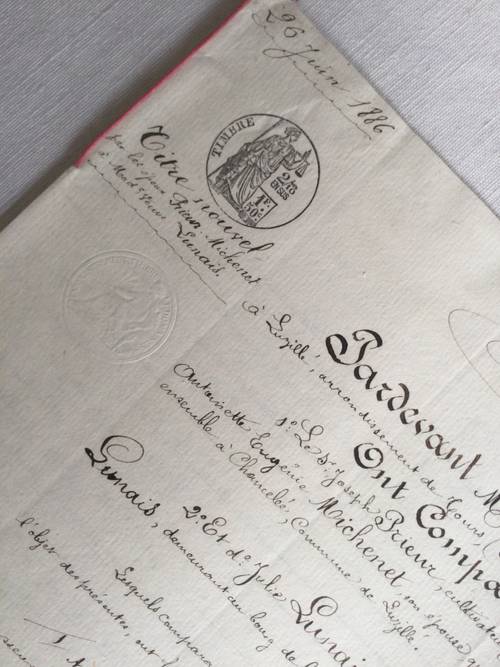 26 Juin 1886
TIMBRE
2/10
EN SUS
1F.
50c.
Titre nouvel
par les époux Prieur-Michenet
à Monsieur Lunais.
Pardevant M
à Luzillé, arrondissement de Tours
Ont Compa
1º. Le Sr. Joseph Prieur, cultiva
Antoinette Eugénie Michenet, son épouse q
ensemble à Chancelée, Commune de Luzillé.
2º Et d. Julie Lunais
Lunais, demeurant au bourg de
Lesquels compara
l'objet des présentes, ont
I